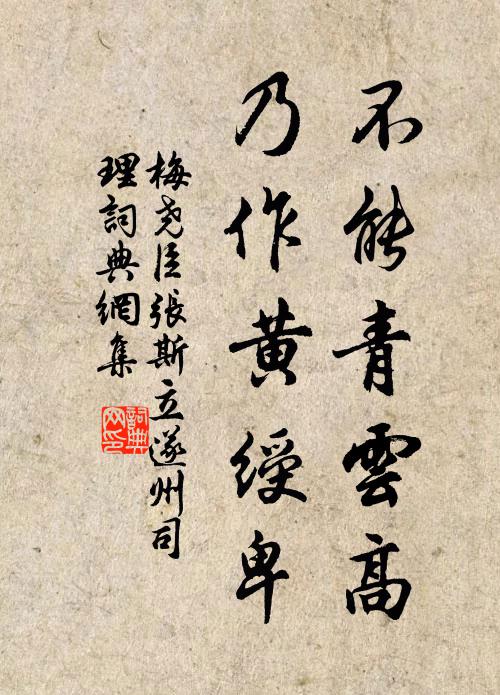 不能青雲高
乃作黄綬卑
梅堯臣張斯立遂州司
理詞典網集
詞典
网印